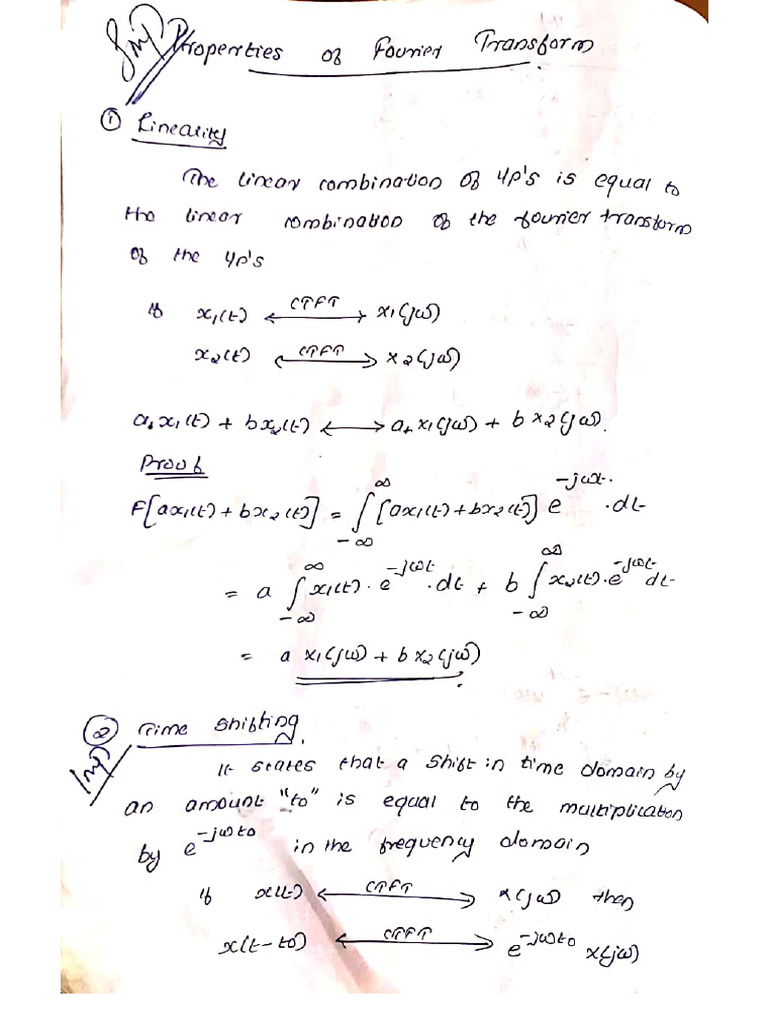 Imp Properties of Fourier Transform
① Linearity
The linear combination of i/p's is equal to
the linear combination of the fourier transform
of the i/p's
if x₁(t) <-CTFT-> x₁(jω)
x₂(t) <-CTFT-> x₂(jω)
a x₁(t) + bx₂(t) <-> a x₁(jω) + b x₂(jω).
Proof
F[ax₁(t) + bx₂(t)] = ∫_{-∞}^{∞} [ax₁(t) + bx₂(t)] e^{-jωt} .dt
= a ∫_{-∞}^{∞} x₁(t). e^{-jωt} .dt + b ∫_{-∞}^{∞} x₂(t). e^{-jωt} dt
= a x₁(jω) + b x₂(jω)
② Time Shifting.
Imp It states that a shift in time domain by
an amount "to" is equal to the multiplication
by e^{-jωto} in the frequency domain
if x(t) <-CTFT-> x(jω) then
x(t-to) <-CTFT-> e^{-jωto} x(jω)